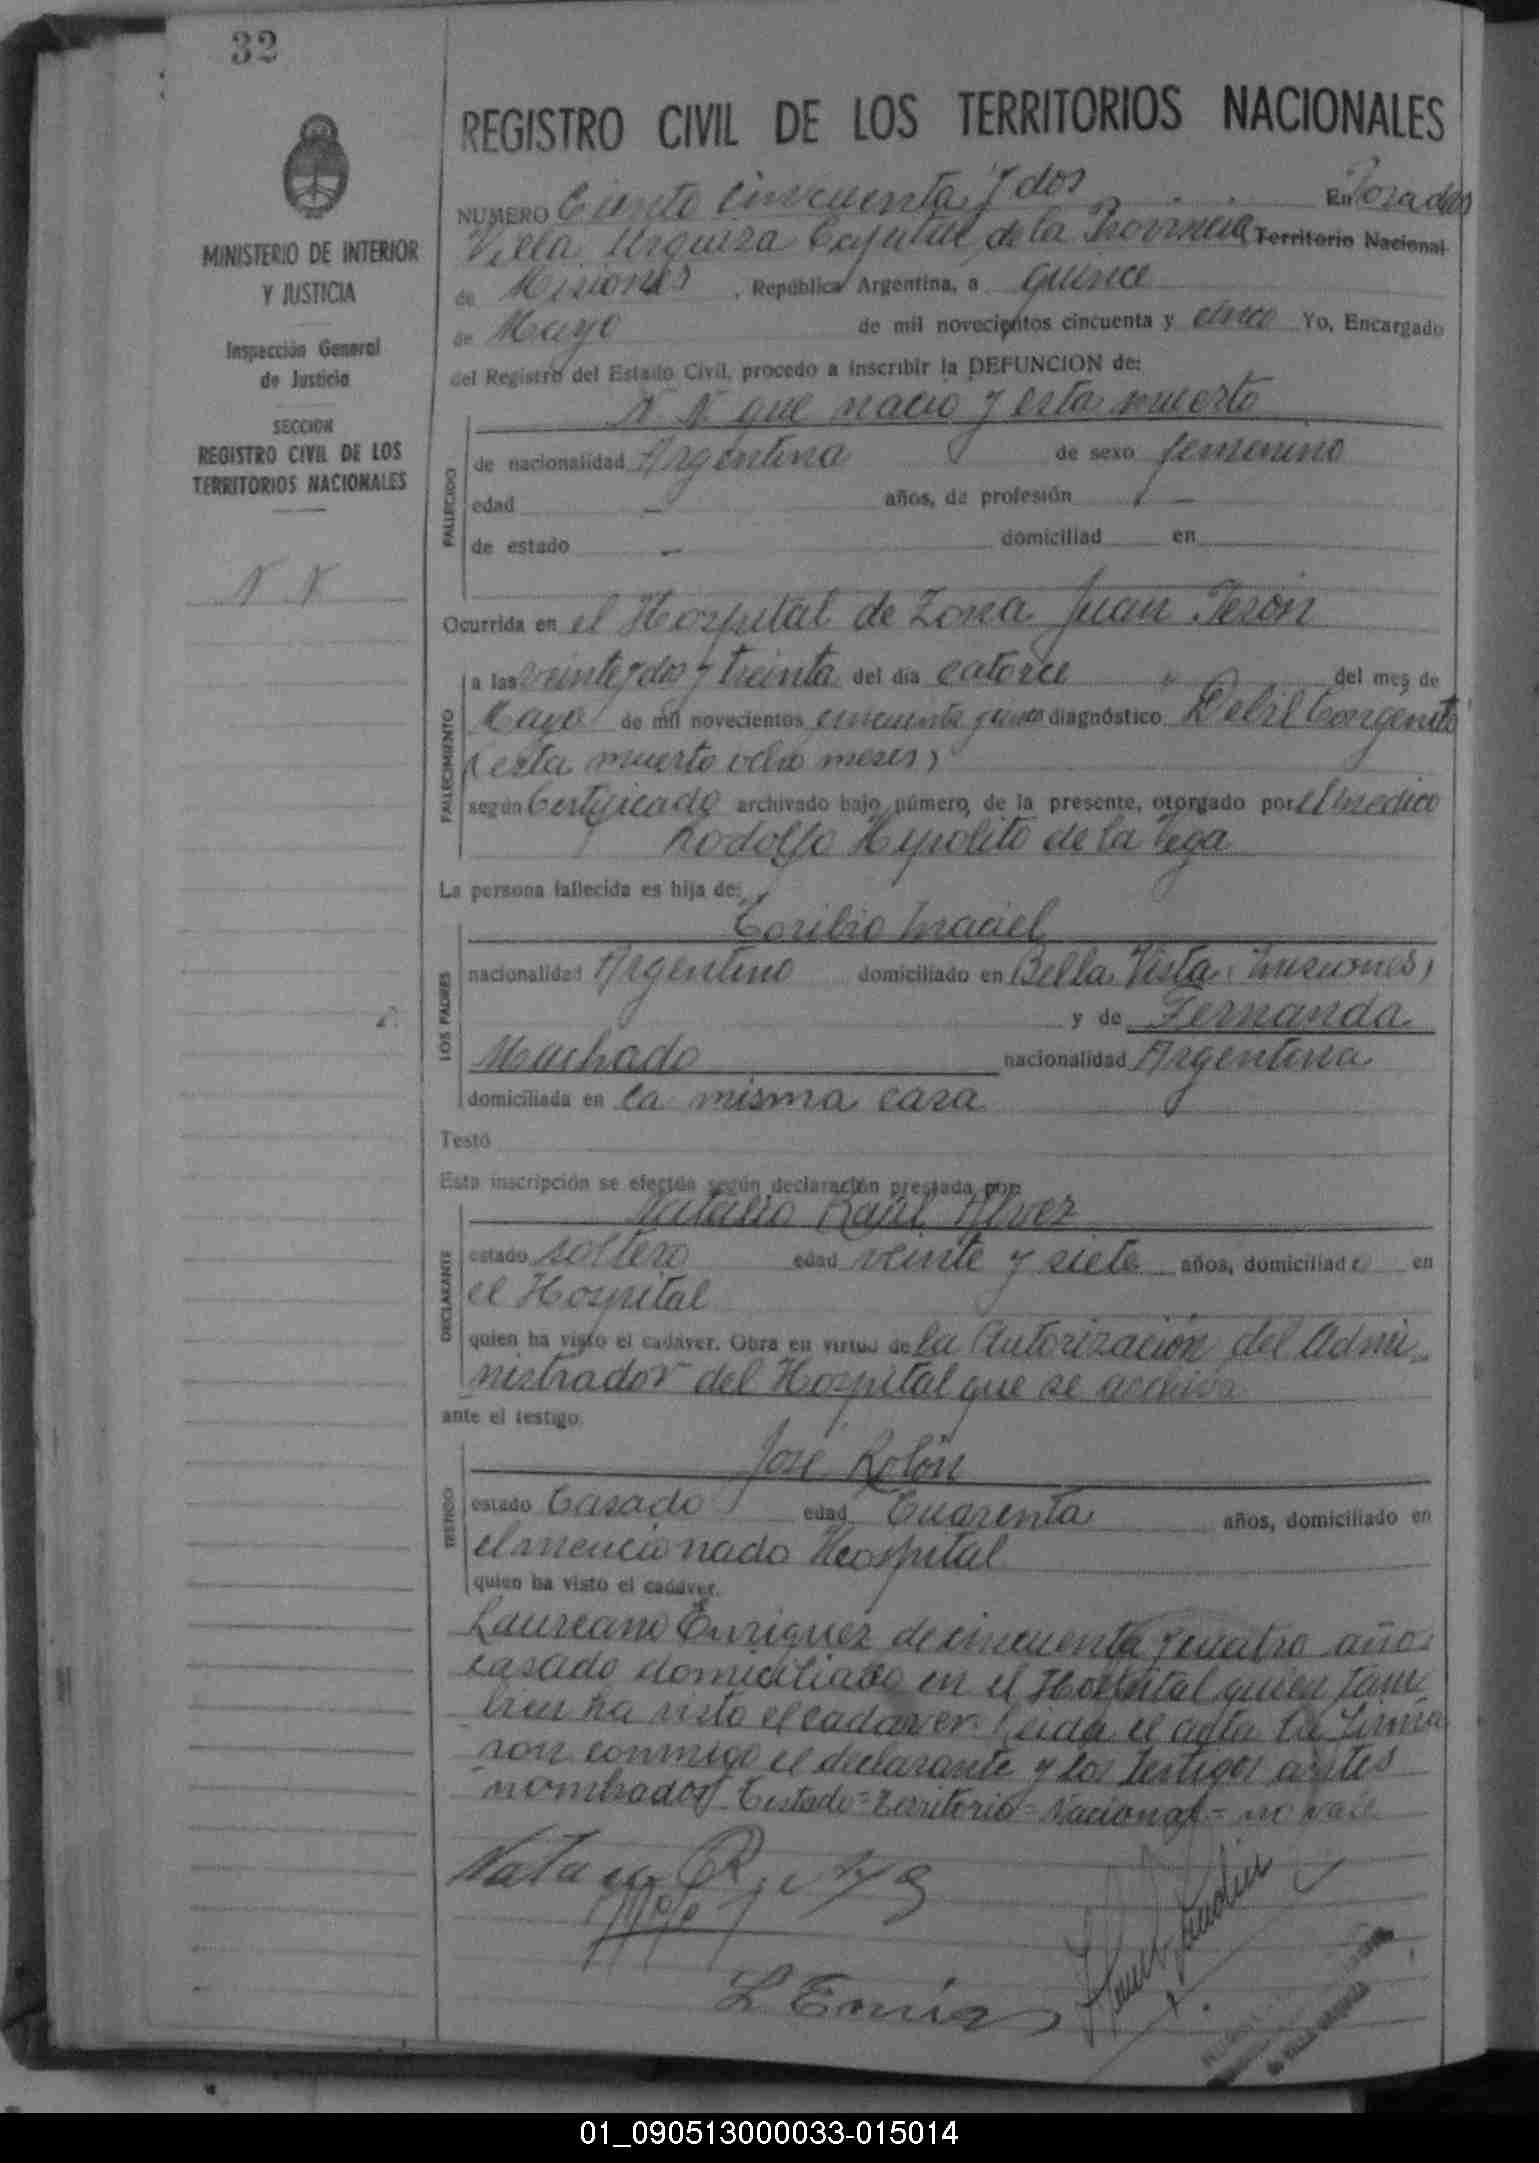 32
MINISTERIO DE INTERIOR
Y JUSTICIA
Inspección General
de Justicia
SECCION
REGISTRO CIVIL DE LOS
TERRITORIOS NACIONALES
N N
REGISTRO CIVIL DE LOS TERRITORIOS NACIONALES
NUMERO Ciento Cincuenta y dos En Posadas
Villa Urquiza Capital de la Provincia Territorio Nacional
de Misiones, República Argentina, a quince
de Mayo de mil novecientos cincuenta y cinco Yo, Encargado
del Registro del Estado Civil, procedo a inscribir la DEFUNCION de:
N. N. que nacio y esta muerto
FALLECIDO
de nacionalidad Argentina de sexo femenino
edad - años, de profesión -
de estado - domiciliad en
Ocurrida en el Hospital de Zona Juan Perón
FALLECIMIENTO
a las veinte y dos y treinta del día catorce del mes de
Mayo de mil novecientos cincuenta y cinco diagnóstico Debil Congenito
(esta muerto ocho meses)
según Certificado archivado bajo número de la presente, otorgado por el medico
Rodolfo Hipolito de la Vega
La persona fallecida es hija de:
LOS PADRES
Toribio Maciel
nacionalidad Argentino domiciliado en Bella Vista (Misiones)
y de Fernanda
Machado nacionalidad Argentina
domiciliada en la misma casa
Testó
Esta inscripción se efectúa según declaración prestada por:
DECLARANTE
Natalio Raúl Alvez
estado soltero edad veinte y siete años, domiciliado en
el Hospital
quien ha visto el cadáver. Obra en virtud de la Autorización del Admi-
nistrador del Hospital que se archiva
ante el testigo:
TESTIGO
José Rolón
estado Casado edad Cuarenta años, domiciliado en
el mencionado Hospital
quien ha visto el cadáver.
Laureano Enriquez de cincuenta y cuatro años
casado domiciliado en el Hospital quien tam
bien ha visto el cadaver. Leida el acta la firma
ron conmigo el declarante y los testigos antes
nombrados Testado=Territorio=Nacional=no vale
L Enriq
01_090513000033-015014